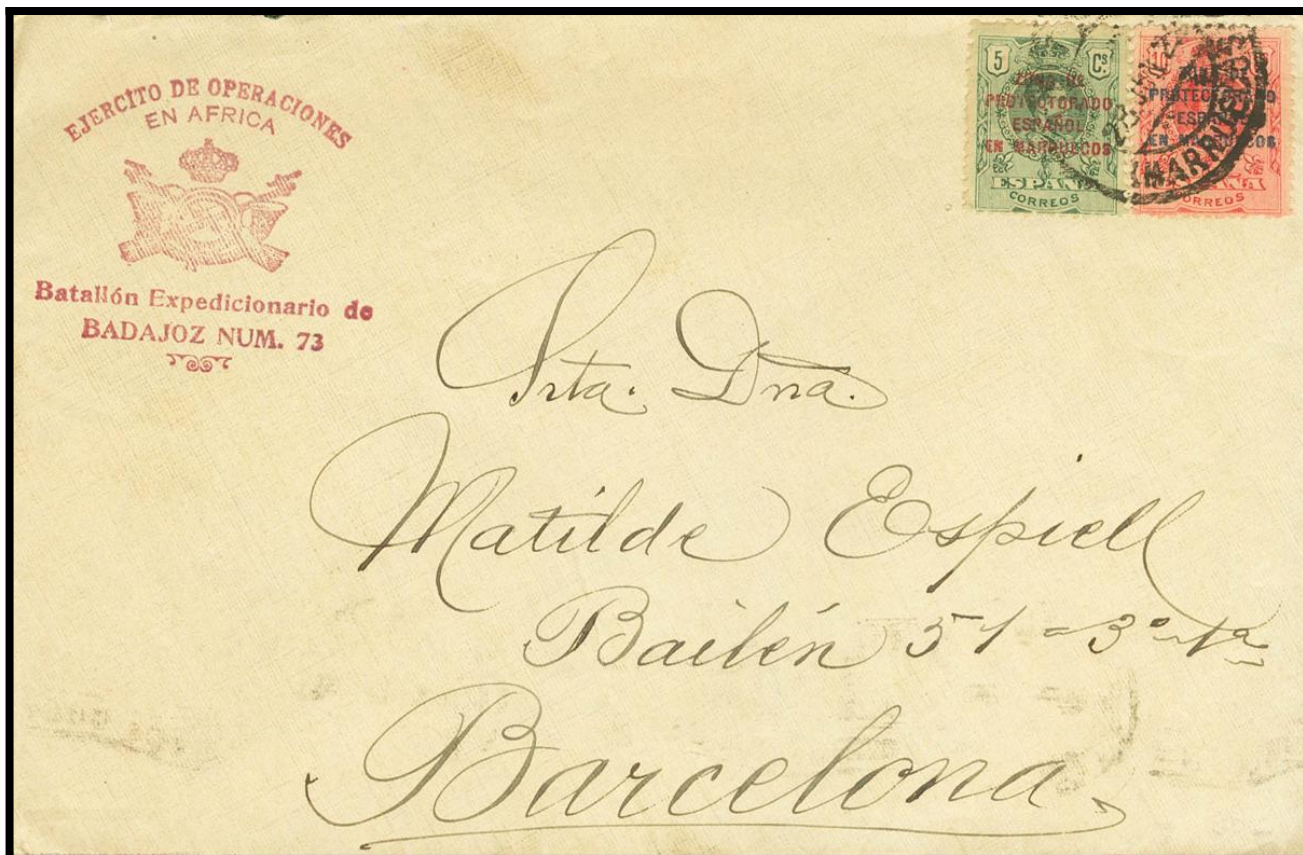 EJERCITO DE OPERACIONES
EN AFRICA
Batallón Expedicionario de
BADAJOZ NUM. 73
5 Cs
ZONA DE
PROTECTORADO
ESPAÑOL
EN MARRUECOS
ESPAÑA
CORREOS
ZONA DE
PROTECTORADO
ESPAÑOL
EN MARRUECOS
ESPAÑA
CORREOS
Srta. Dna.
Matilde Espiell
Bailén 51 = 3º 1ª
Barcelona